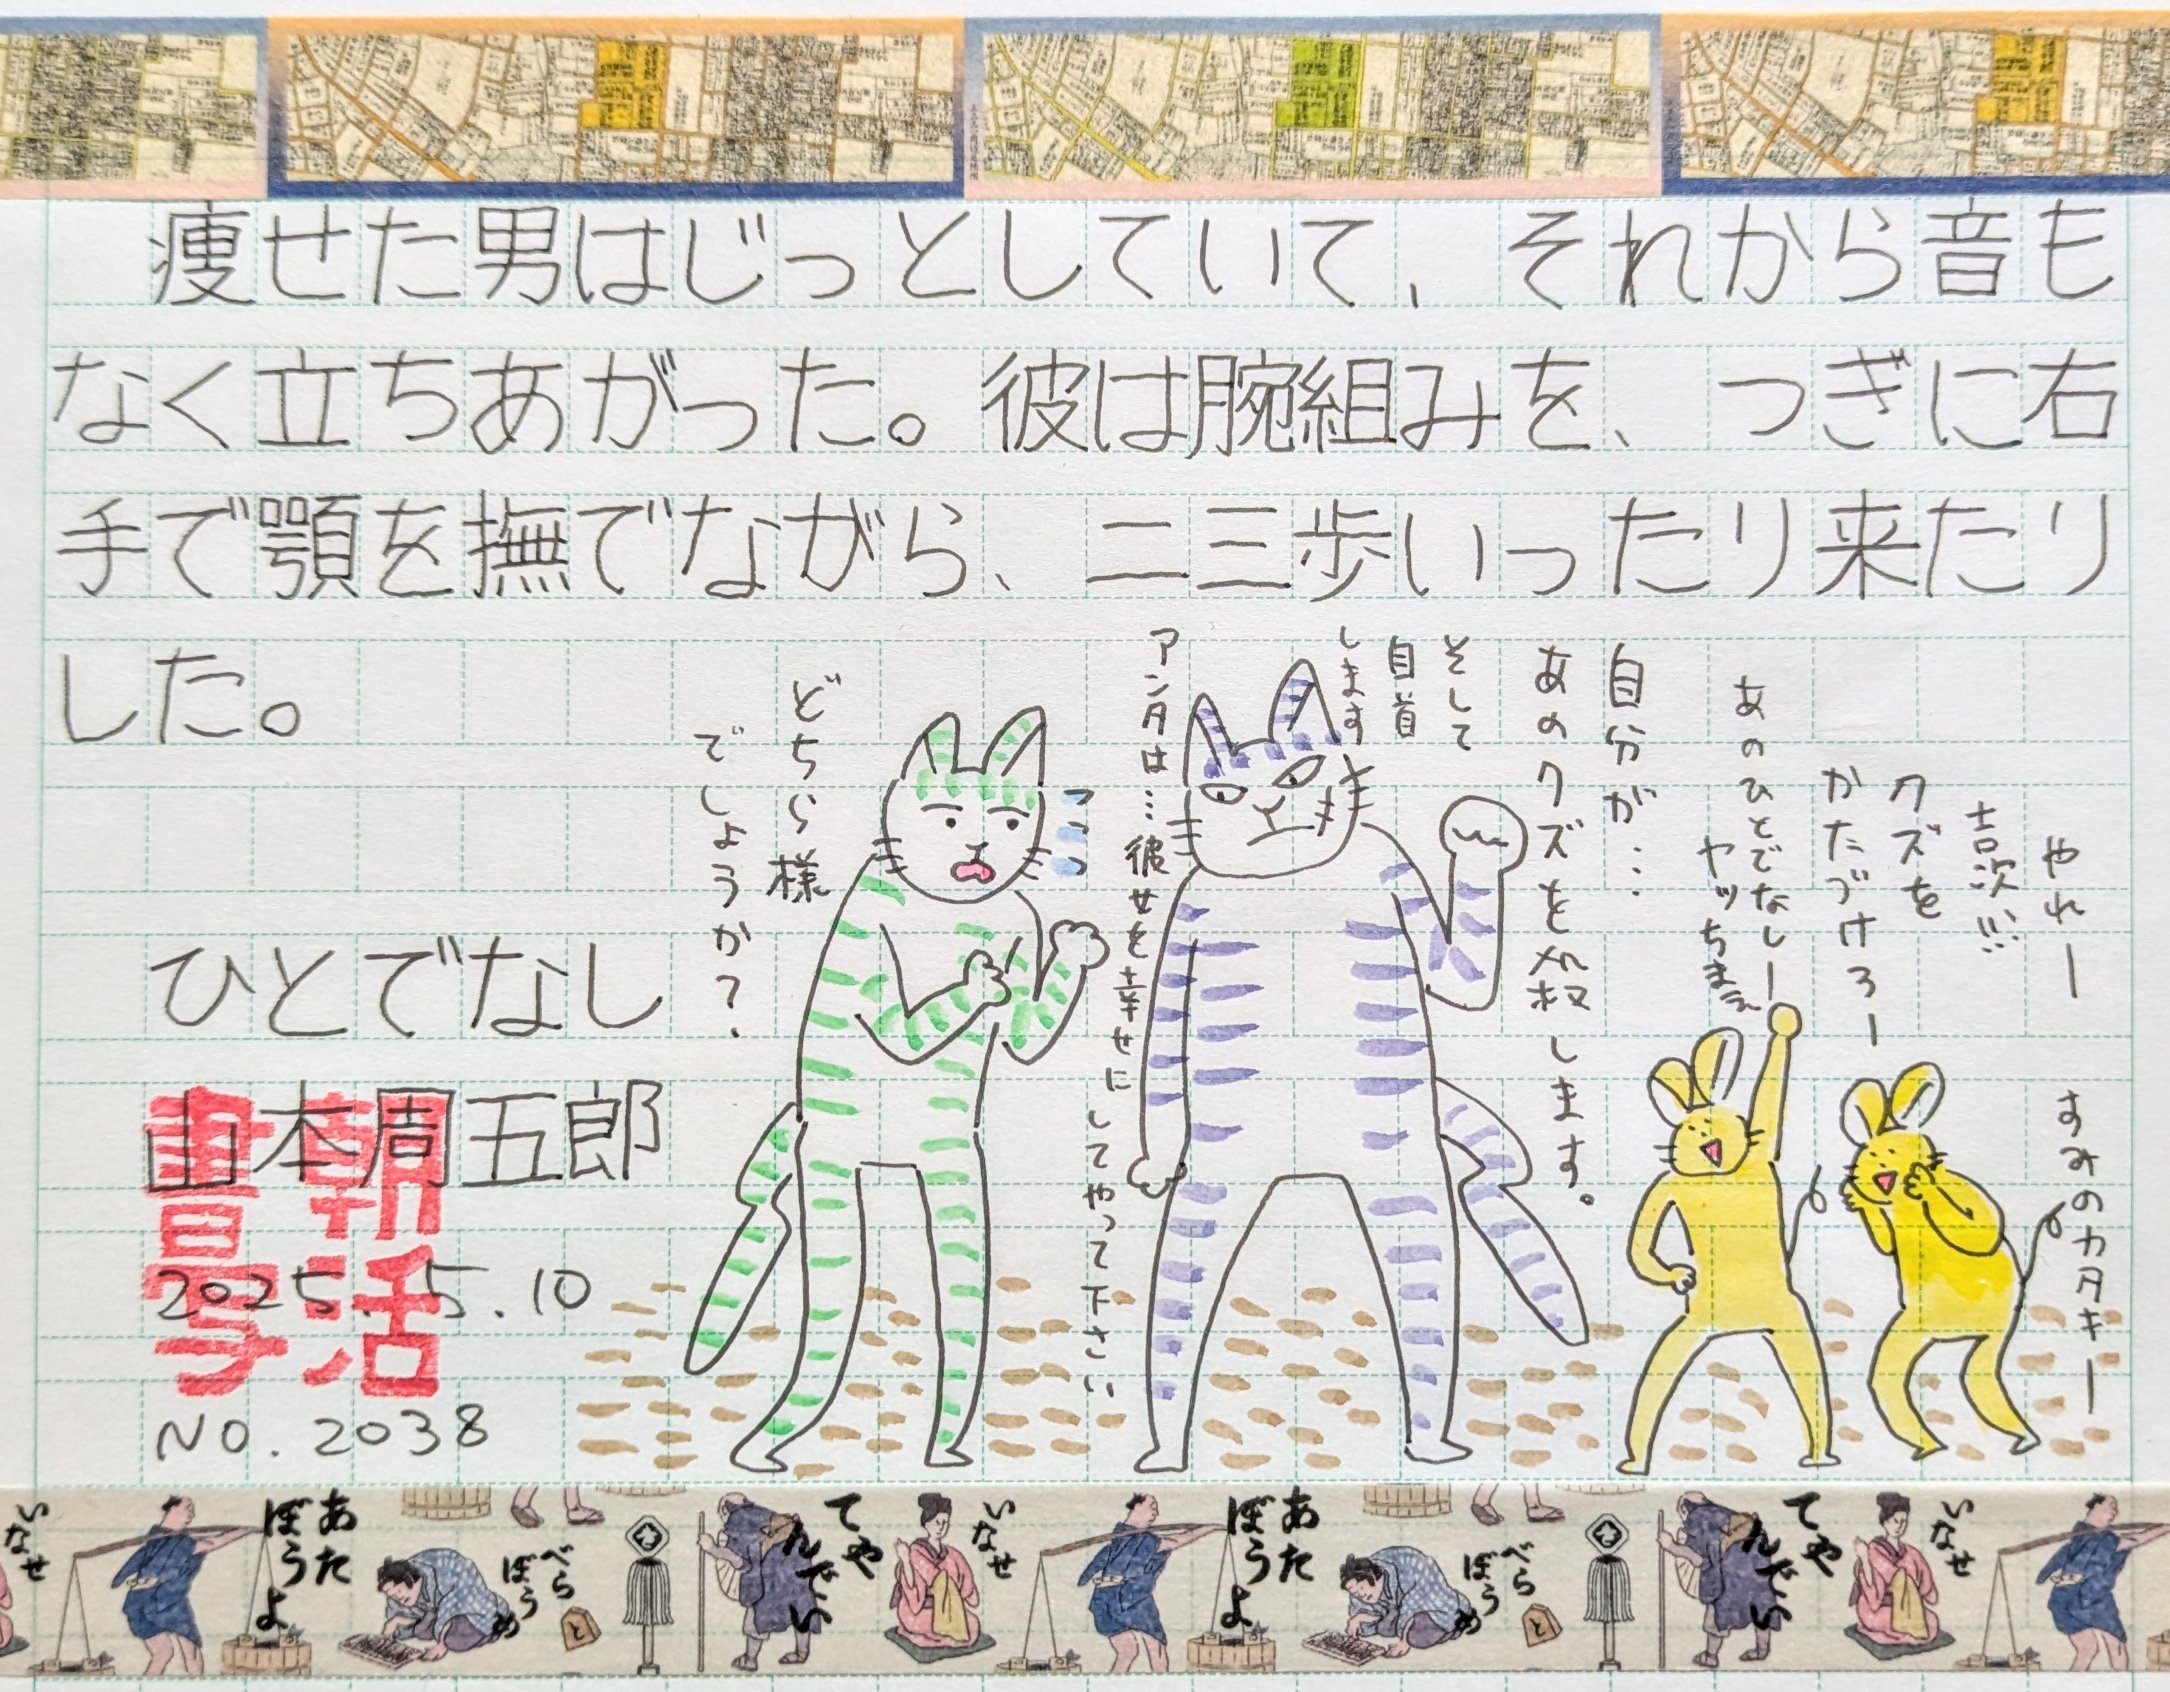 痩せた男はじっとしていて、それから音も
なく立ちあがった。彼は腕組みを、つぎに右
手で顎を撫でながら、二三歩いったり来たり
した。
ひとでなし
山本周五郎
2025.5.10
NO.2038
朝活
書写
やれー
吉次!!!
クズを
かたづけろー
あのひとでなしー
ヤッちまえ
すみのカタキー
自分が…
あのクズを殺します。
そして
自首
します
アンタは…彼女を幸せにしてやって下さい
どちら様
でしょうか?
いなせ
あた
ぼうよ
べら
ぼうめ
と
てや
んでい
いなせ
あた
ぼうよ
べら
ぼうめ
と
てや
んでい
いなせ